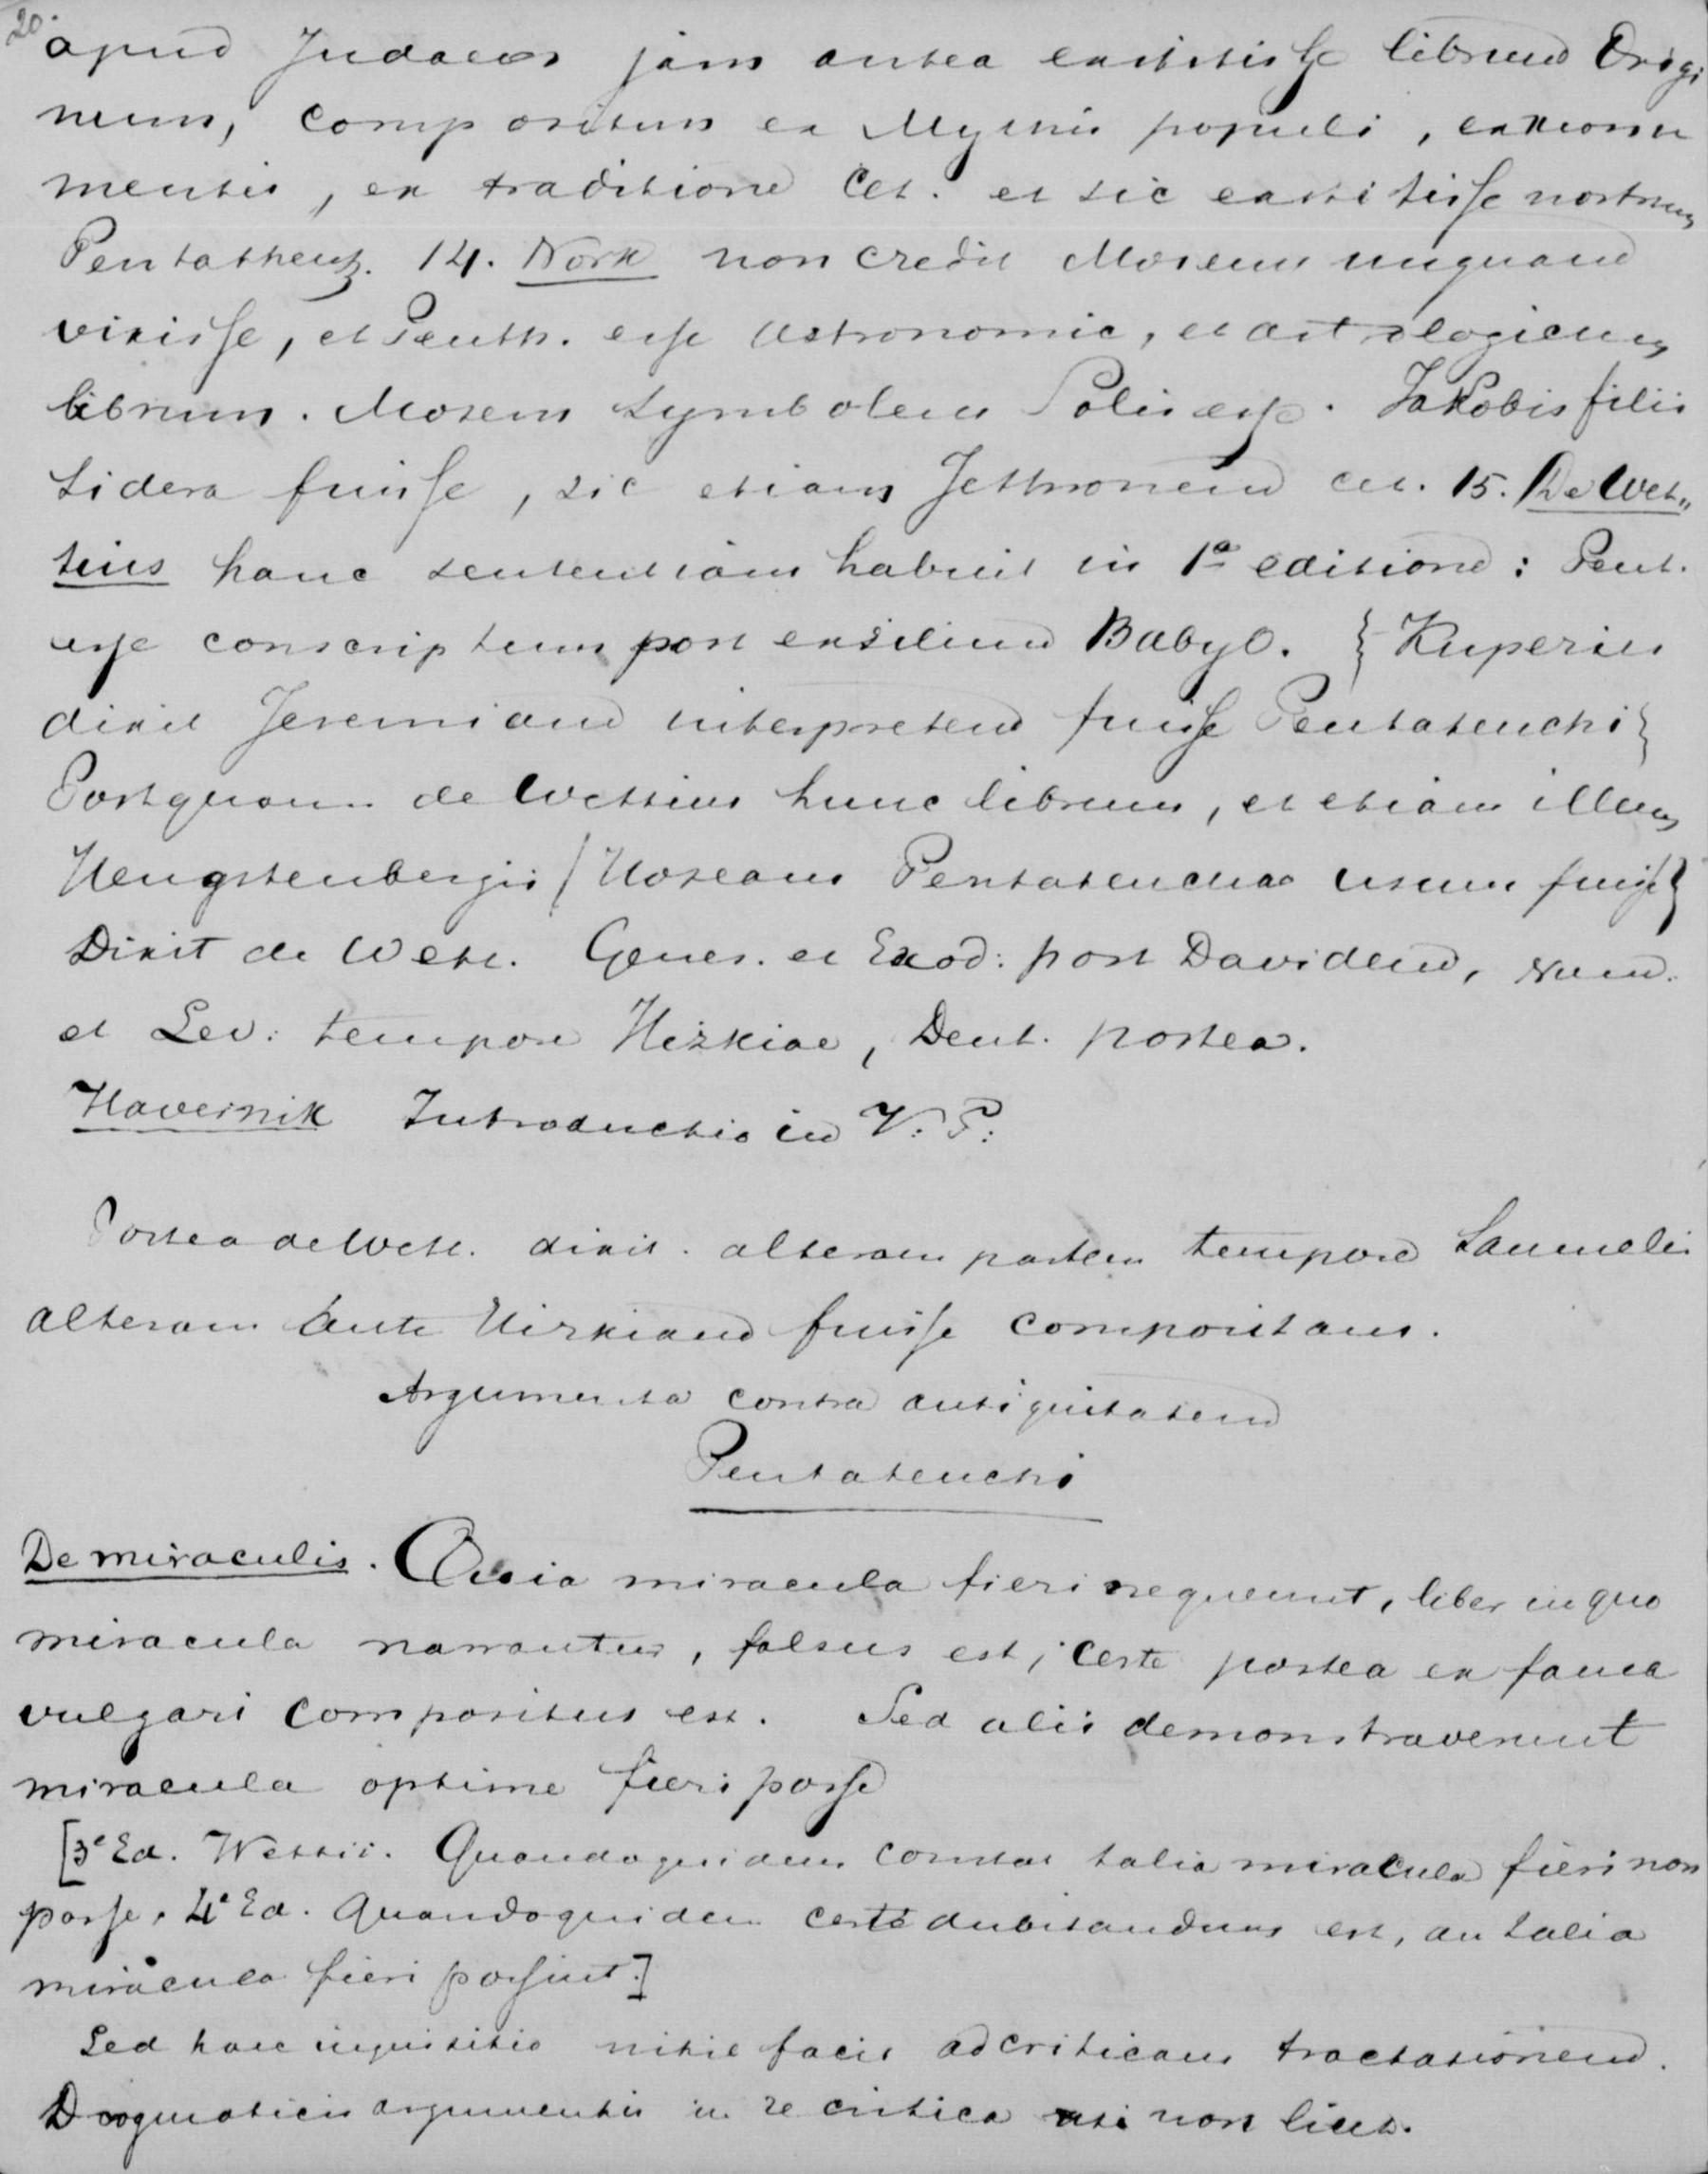 20.
apud Judaeos jam antea exstitisse librum Origi
num, compositum ex Mythis populi, ex monu
mentis, ex traditione cet. et sic exstitisse nostrum
Pentatheuch. 14. Nork non credit Mosem unquam
vixisse, et Penth. esse astronomic, et astrologicum
librum. Mosem symbolum Solis esse. Jakobis filis
sidera fuisse, sic etiam Jethronem cet. 15. De Wet„
tius hanc sententiam habuit in 1a editione: Pent.
esse conscriptum post exsilium Babyl. { Kuperus
dixit Jeremiam interpretem fuisse Pentateuchi }
Postquam de Wettius hunc librum, et etiam illum
Hengstenbergis / Hoseam Pentateucho usum fuisse }
Dixit de Wett. Genes. et Exod: post Davidem, Num.
et Lev: tempore Hizkiae, Deut. postea.
Havernik Introductio in V: T:
Postea de Wett. dixit. alteram partem tempore Samuelis
alteram ante Hizkiam fuisse compositam.
Argumenta contra antiquitatem
Pentateuchi
De miraculis. Quia miracula fieri nequeunt, liber in quo
miracula narrantur, falsus est; certe postea ex fama
vulgari compositus est. Sed alii demonstraverunt
miracula optime fieri posse
[3e Ed. Wettii. Quandoquidem constat talia miracula fieri non
posse. 4e Ed. Quandoquidem certe dubitandum est, an talia
miracula fieri possint.]
Sed haec inquisitio nihil facit ad criticam tractationem.
Dogmaticis argumentis in re critica uti non licet.